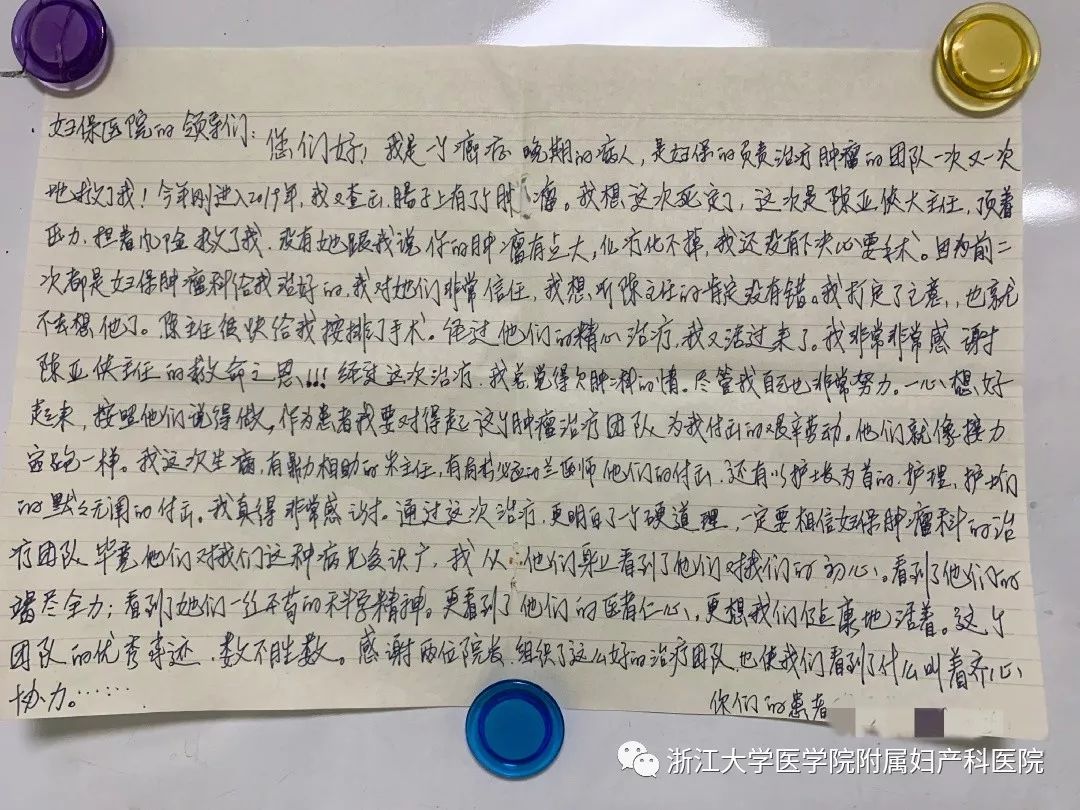 妇保医院的领导们:
您们好!我是一个癌症晚期的病人,是妇保的负责治疗肿瘤的团队一次又一次
地救了我!今年刚进入2019年,我又查出,肠子上有了个肿瘤。我想这次死定了,这次是陈亚侠大主任,顶着
压力,担着风险救了我,没有她跟我说你的肿瘤有点大,化疗化不掉,我还没有下决心要手术。因为前二
次都是妇保肿瘤科给我治好的,我对她们非常信任,我想听陈主任的肯定没有错。我打定了主意,也就
不去想他了。陈主任很快给我按排了手术。经过他们的精心治疗,我又活过来了。我非常非常感谢
陈亚侠主任的救命之恩!!!经过这次治疗,我总觉得欠肿瘤科的情。尽管我自己也非常努力。一心想好
起来,按照他们说得做。作为患者我要对得起这个肿瘤治疗团队为我付出的艰辛劳动。他们就像接力
跑一样。我这次生病,有鼎力相助的朱主任,有有求必应的兰医师他们的付出,还有以护士长为首的,护理,护士们
的默默无闻的付出。我真得非常感谢。通过这次治疗,更明白了一个硬道理,一定要相信妇保肿瘤科的治
疗团队,毕竟他们对我们这种病见多识广,我从他们身上看到了他们对我们的初心。看到了他们的
竭尽全力;看到了她们一丝不苟的科学精神。更看到了他们的医者仁心,更想我们健康地活着。这个
团队的优秀事迹,数不胜数。感谢两位院长,组织了这么好的治疗团队,也使我们看到了什么叫着齐心
协力。……
你们的患者
浙江大学医学院附属妇产科医院